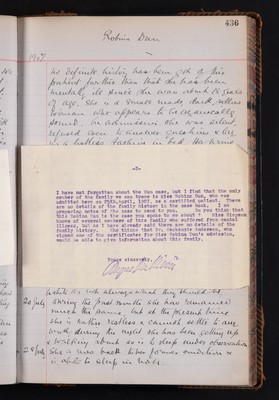 436
Robina Dun
1907
No definite history has been got of this
patient further than that she has been
mentally ill since she was about 26 years
of age. She is a small made, dark,
woman who appears to be organically
sound. On admission she was silent,
refused even to answer questions & lay
in a listless fashion in bed. No
-2-
I have not forgotten about the Dun case, but I find that the only
member of the family we can trace is Miss Robina Dun, who was
admitted here on 25th April, 1907, as a certified patient. There
are no details of the family history in the case book. I am
preparing notes of the case to send to you. Do you think that
this Robina Dun is the case you spoke to me about? Miss
knows of several members of this family who suffered from mental
illness, but as I have already said there are no details of the
family history. She thinks that Dr. Mackenzie Anderson, who
signed one of the certificates for Miss Robina Dun's admission,
would be able to give information about this family.
Yours sincerely,
always what they should be
20 July During the past month she has remained
much the same, but at the present time
she is rather restless & cannot settle to any
work during the night she has been getting up
& walking about so is to sleep under observation
28 July She is now back
is able to sleep in